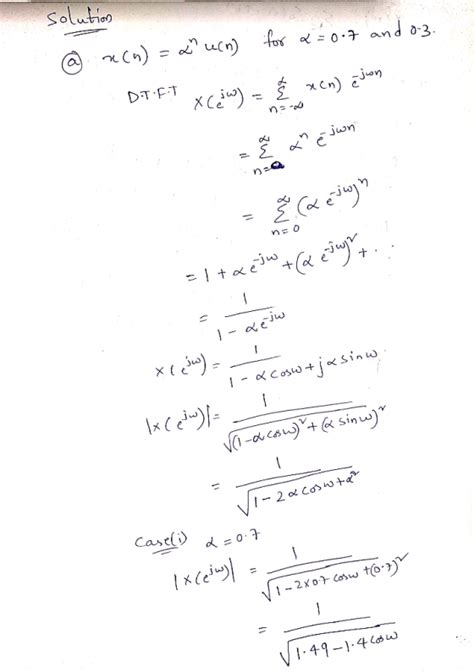 Solution
(a) x(n) = αⁿ u(n) for α = 0.7 and 0.3.
D.T.F.T X(e^{jω}) = Σ_{n=-∞}^{∞} x(n) e^{-jωn}
= Σ_{n=0}^{∞} αⁿ e^{-jωn}
= Σ_{n=0}^{∞} (α e^{-jω})ⁿ
= 1 + α e^{-jω} + (α e^{-jω})² + ...
= 1 / (1 - α e^{-jω})
X(e^{jω}) = 1 / (1 - α cosω + j α sinω)
|X(e^{jω})| = 1 / √((1-α cosω)² + (α sinω)²)
= 1 / √(1 - 2α cosω + α²)
Case(i) α = 0.7
|X(e^{jω})| = 1 / √(1 - 2×0.7 cosω + (0.7)²)
= 1 / √(1.49 - 1.4 cosω)